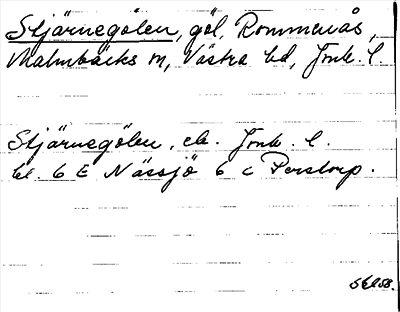 Stjärnegölen, göl, Rommenås,
Malmbäcks sn, Västra hd, Jönk. l.
Stjärnegölen, ek. Jönk. l.
bl. 6 E Nässjö 6 c Perstorp.